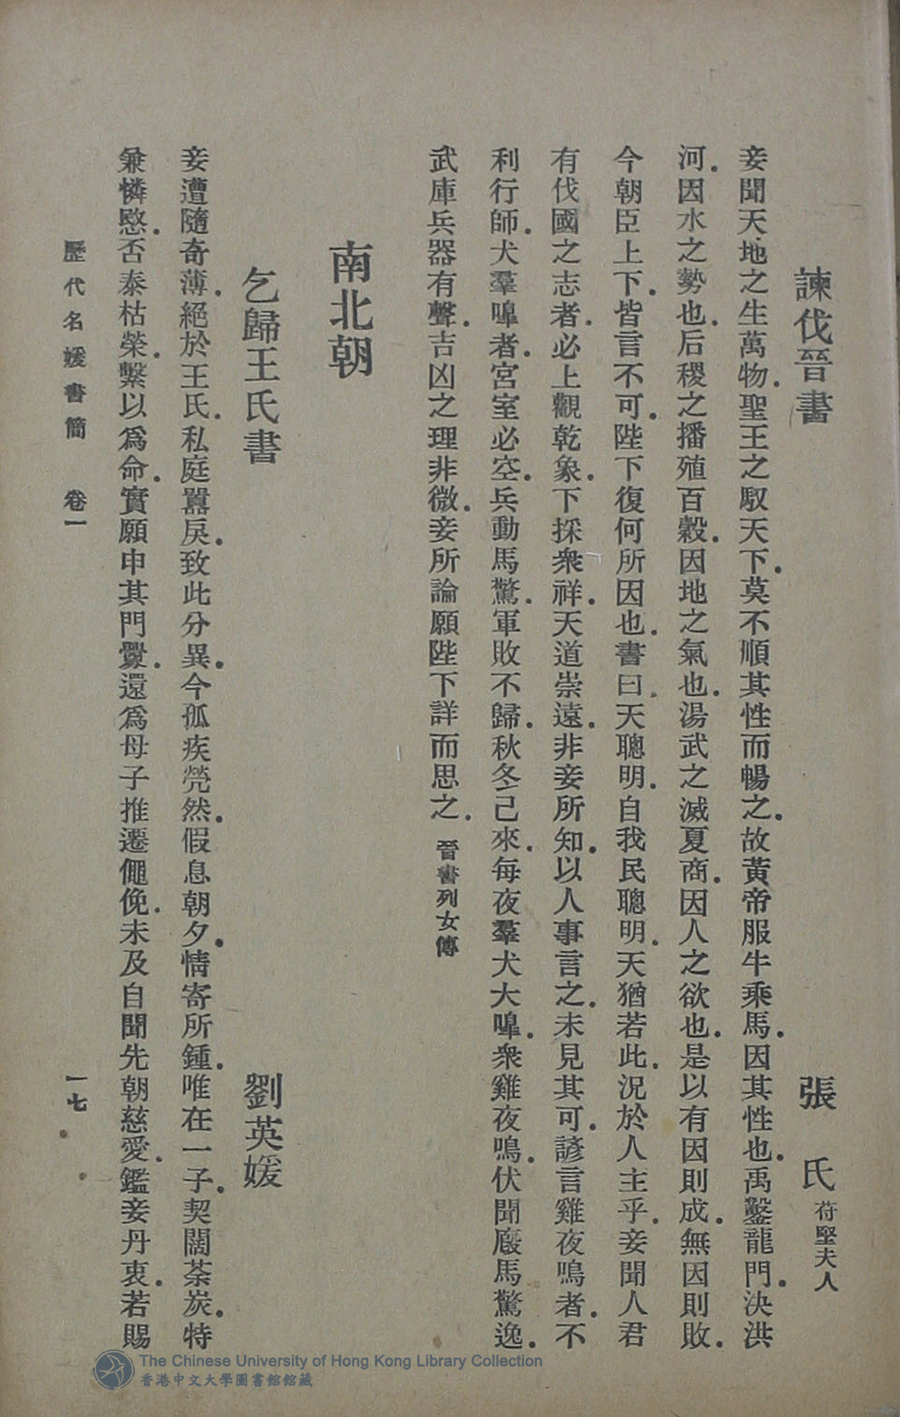 諫伐晉書　張　氏 苻堅夫人
妾聞天地之生萬物．聖王之馭天下．莫不順其性而暢之．故黃帝服牛乘馬．因其性也．禹鑿龍門．決洪
河．因水之勢也．后稷之播殖百穀．因地之氣也．湯武之滅夏商．因人之欲也．是以有因則成．無因則敗．
今朝臣上下．皆言不可．陛下復何所因也．書曰．天聰明．自我民聰明．天猶若此．況於人主乎．妾聞人君
有伐國之志者．必上觀乾象．下採衆祥．天道崇遠．非妾所知．以人事言之．未見其可．諺言雞夜鳴者．不
利行師．犬羣嘷者．宮室必空．兵動馬驚．軍敗不歸．秋冬已來．每夜羣犬大嘷．衆雞夜鳴．伏聞廄馬驚逸．
武庫兵器有聲．吉凶之理非微．妾所論願陛下詳而思之．晉書列女傳
南北朝
乞歸王氏書　劉英媛
妾遭隨奇薄．絕於王氏．私庭嚚戾．致此分異．今孤疾煢然．假息朝夕．情寄所鍾．唯在一子．契闊荼炭．特
兼憐愍．否泰枯榮．繫以爲命．實願申其門釁．還爲母子．推遷僶俛．未及自聞．先朝慈愛．鑑妾丹衷．若賜
歷代名媛書簡　卷一　一七
The Chinese University of Hong Kong Library Collection
香港中文大學圖書館館藏